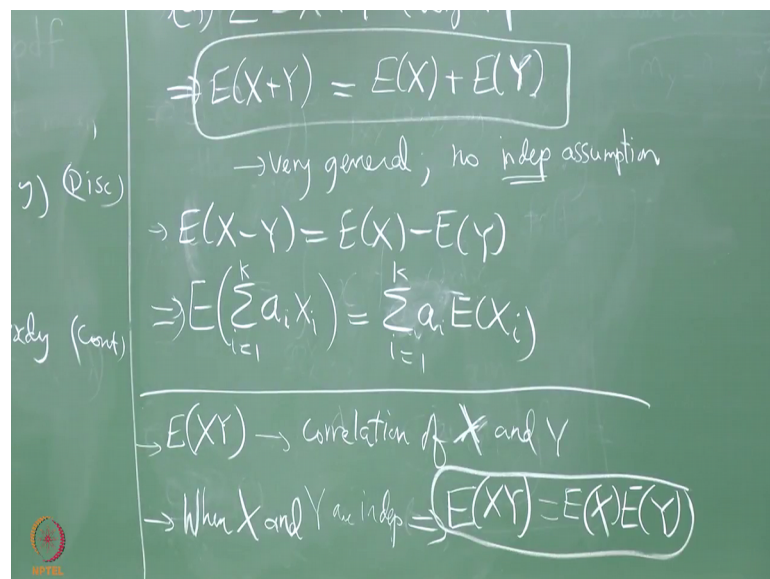 pdf
⇒ E(X+Y) = E(X) + E(Y)
→ very general; no indep assumption
y) (Disc)
→ E(X-Y) = E(X) - E(Y)
⇒ E(∑_{i=1}^{k} a_i X_i) = ∑_{i=1}^{k} a_i E(X_i)
xdy (Cont)
→ E(XY) → Correlation of X and Y
→ When X and Y are indep ⇒ E(XY) = E(X)E(Y)
NPTEL